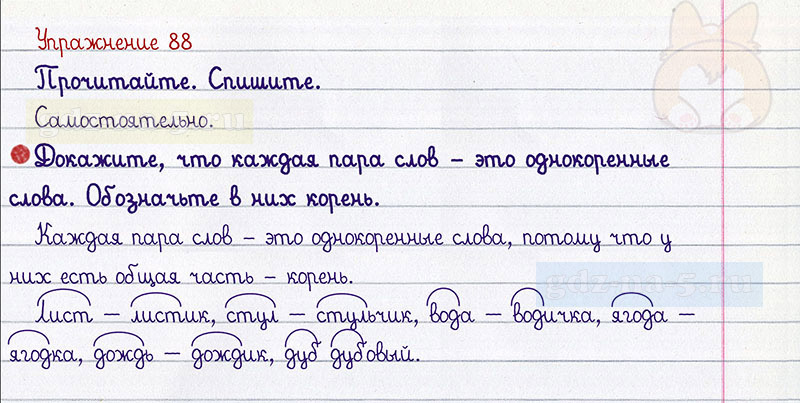 Упражнение 88
Прочитайте. Спишите.
Самостоятельно.
Докажите, что каждая пара слов – это однокоренные
слова. Обозначьте в них корень.
Каждая пара слов – это однокоренные слова, потому что у
них есть общая часть – корень.
Лист – листик, стул – стульчик, вода – водичка, ягода –
ягодка, дождь – дождик, дуб дубовый.
gdz-na-5.ru